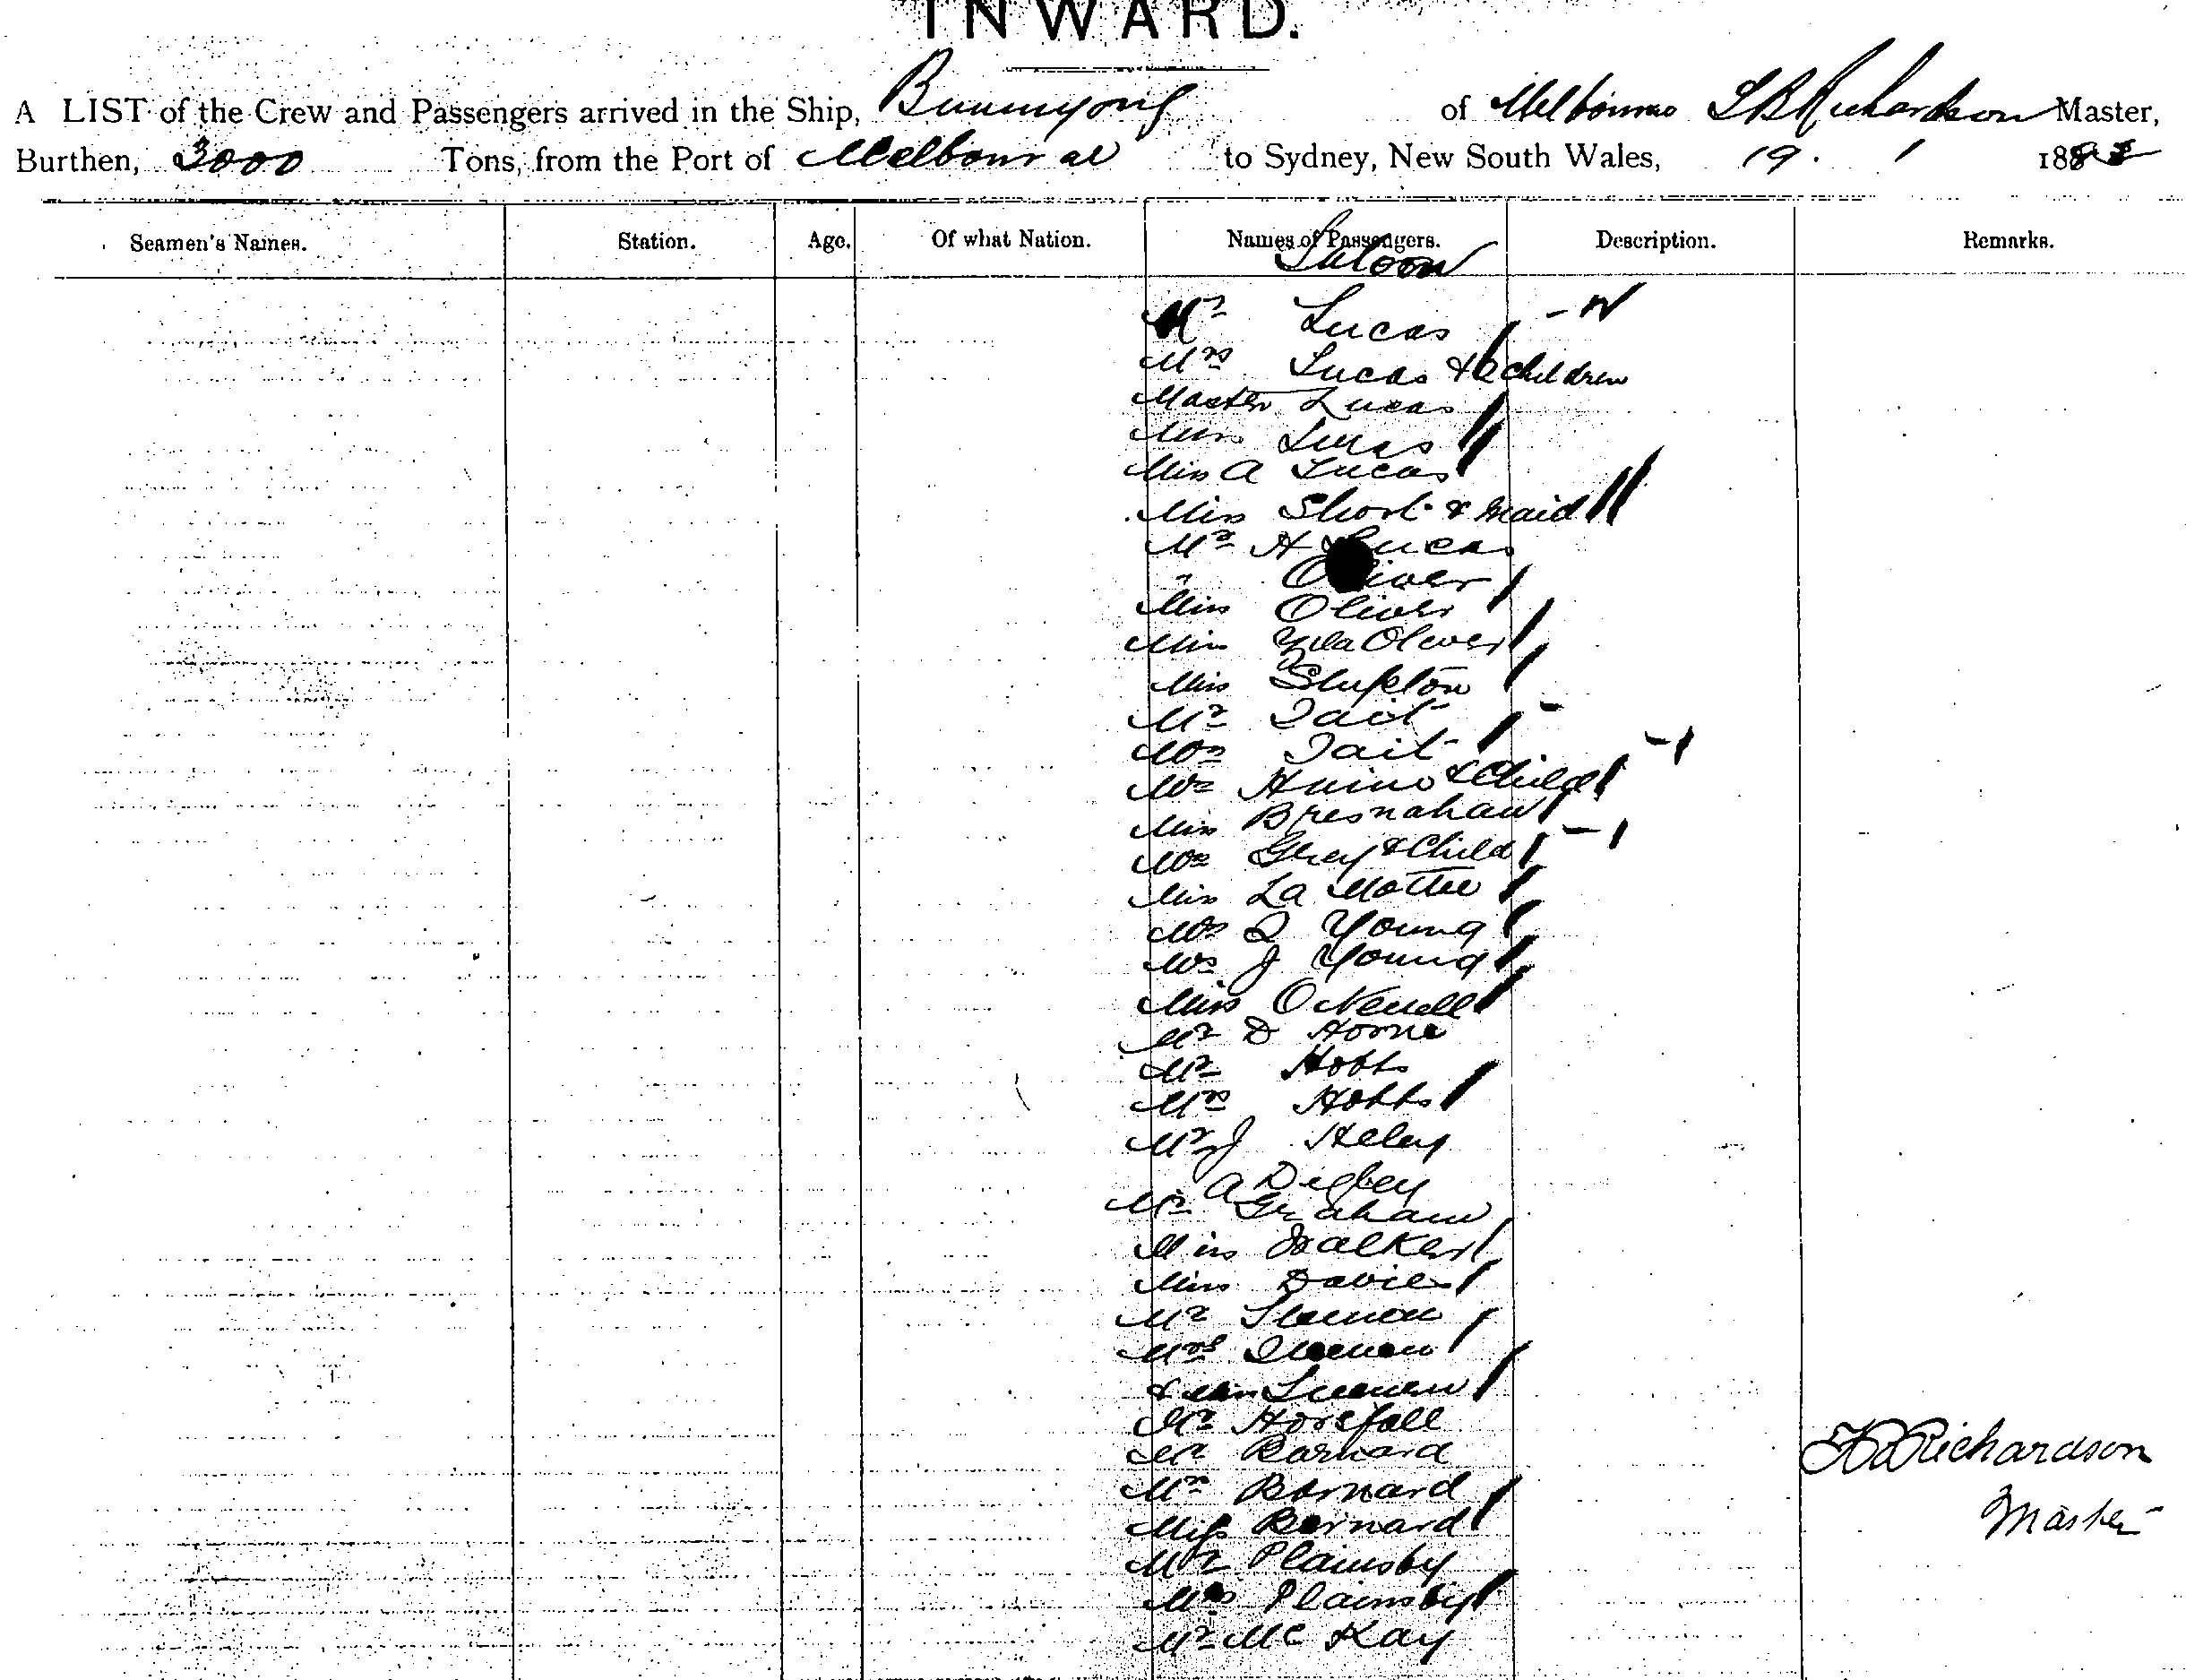 INWARD.
A LIST of the Crew and Passengers arrived in the Ship, Buninyong of Melbourne Richardson Master,
Burthen, 3000 Tons, from the Port of Melbourne to Sydney, New South Wales, 19. 1 188
Seamen's Names. Station. Age. Of what Nation. Names of Passengers. Description. Remarks.
Saloon
Mr Lucas
Mrs Lucas & children
Master Lucas
Miss Lucas
Miss A Lucas
Miss Short & Maid
Mr H Lucas
" Oliver
Miss Oliver
Miss Oliver
Miss
Mr Tait
Mrs Tait
Mrs & Child
Miss Bresnahan
Mrs Grey & Child
Miss La Mothe
Mrs Young
Mrs J Young
Miss O
Mr D Horne
Mr Hobbs
Mrs Hobbs
Mr J Heley
A Digby
Mr Graham
Miss Walker
Miss Davies
Mr
Mrs
& Miss
Mr Horsfall
Mr Barnard
Mrs Barnard
Miss Barnard
Mr Plainsby
Mrs Plainsby
Mr McKay
Richardson
Master